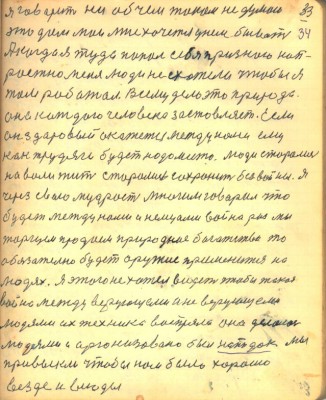 я говорить ни об чем таком не думаю 33
это дом мой мне хочется у нем бывать 34
А когда я туда попал себя признал нап-
расно меня люди не схотели чтобы я
там работал. Всему дело это природа.
она каждого человека заставляет. Если
он здоровый окажется между нами ему
как трудяге будет надо место. Люди старалися
на воли жить старалися сохранить без войны. Я
через свою мудрость многим говорил что
будет между нами и немцами война раз мы
торгуем продаем природные богатства то
обязательно будет оружие применится на
людях. Я этого не хотел видеть чтобы такая
война между верующими и не верующими
людями их техника встрела она делает
людями а организовано был нападок мы
привыкли чтобы нам было хорошо
везде и всюды